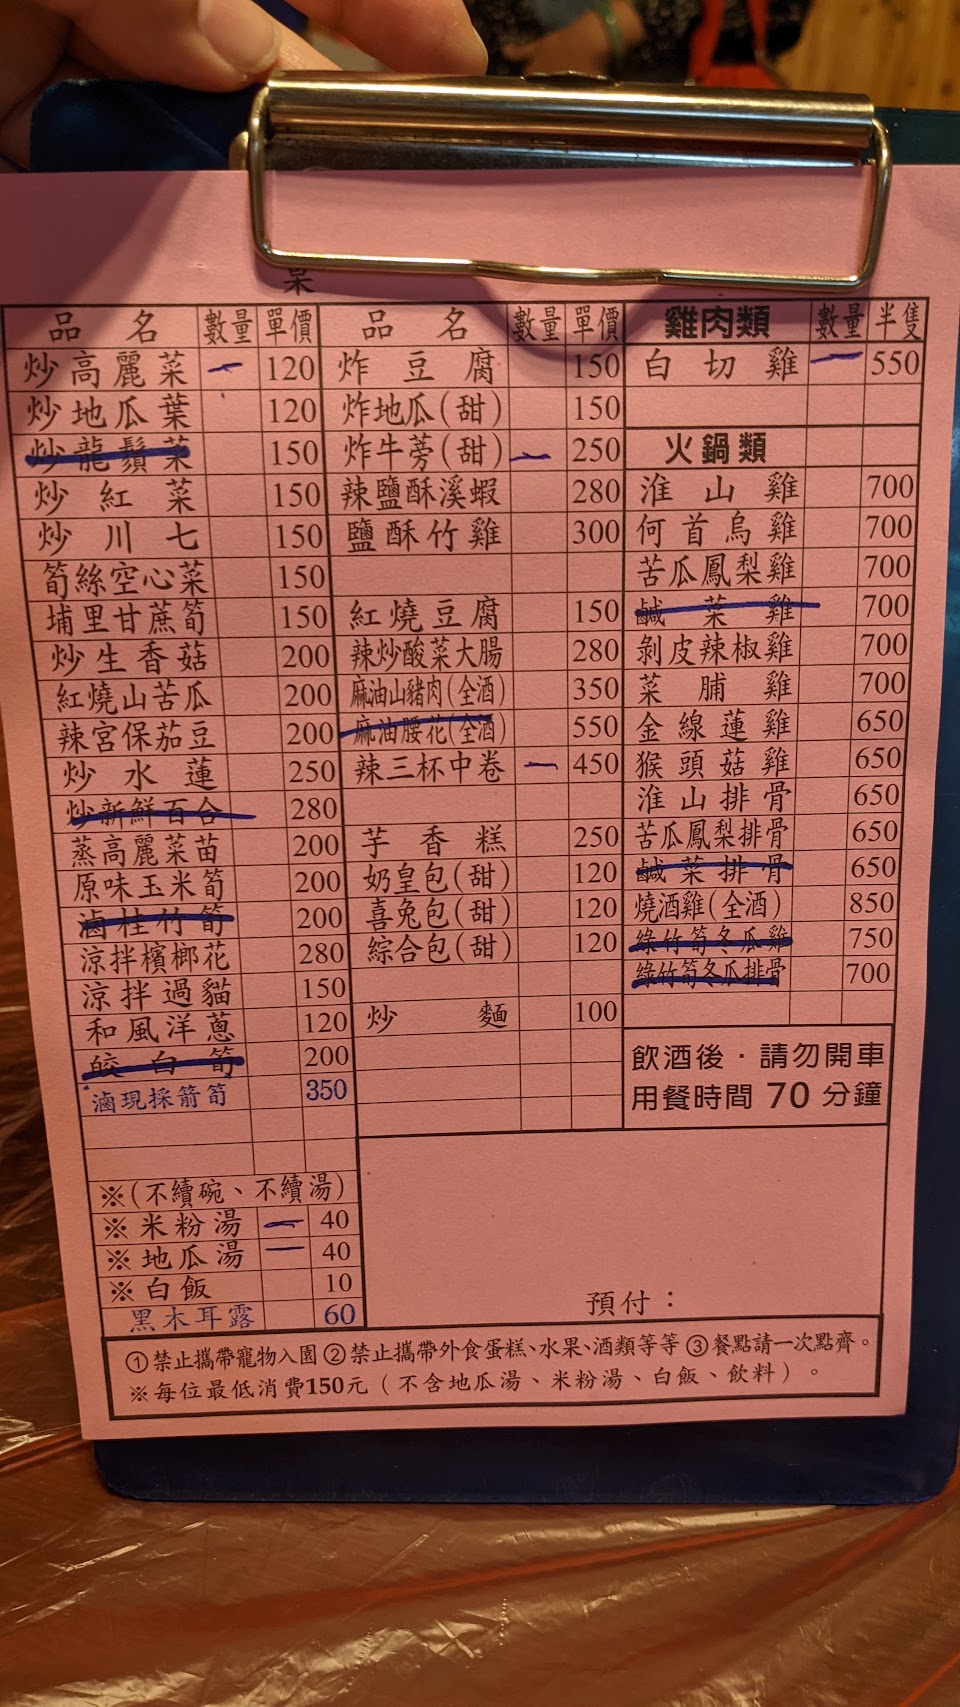 品名 數量 單價
炒高麗菜 一 120
炒地瓜葉 120
炒龍鬚菜 150
炒紅菜 150
炒川七 150
筍絲空心菜 150
埔里甘蔗筍 150
炒生香菇 200
紅燒山苦瓜 200
辣宮保茄豆 200
炒水蓮 250
炒新鮮百合 280
蒸高麗菜苗 200
原味玉米筍 200
滷桂竹筍 200
涼拌檳榔花 280
涼拌過貓 150
和風洋蔥 120
皎白筍 200
滷現採箭筍 350
※(不續碗、不續湯)
※米粉湯 一 40
※地瓜湯 一 40
※白飯 10
黑木耳露 60
品名 數量 單價
炸豆腐 150
炸地瓜(甜) 150
炸牛蒡(甜) 一 250
辣鹽酥溪蝦 280
鹽酥竹雞 300
紅燒豆腐 150
辣炒酸菜大腸 280
麻油山豬肉(全酒) 350
麻油腰花(全酒) 550
辣三杯中卷 一 450
芋香糕 250
奶皇包(甜) 120
喜兔包(甜) 120
綜合包(甜) 120
炒麵 100
雞肉類 數量 半隻
白切雞 一 550
火鍋類
淮山雞 700
何首烏雞 700
苦瓜鳳梨雞 700
鹹菜雞 700
剝皮辣椒雞 700
菜脯雞 700
金線蓮雞 650
猴頭菇雞 650
淮山排骨 650
苦瓜鳳梨排骨 650
鹹菜排骨 650
燒酒雞(全酒) 850
綠竹筍冬瓜雞 750
綠竹筍冬瓜排骨 700
飲酒後·請勿開車
用餐時間 70 分鐘
預付：
①禁止攜帶寵物入園②禁止攜帶外食蛋糕、水果、酒類等等③餐點請一次點齊。
※每位最低消費150元（不含地瓜湯、米粉湯、白飯、飲料）。